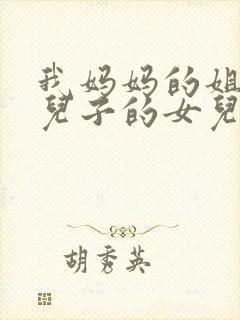 我妈妈的姐
兒子的女兒
胡秀英